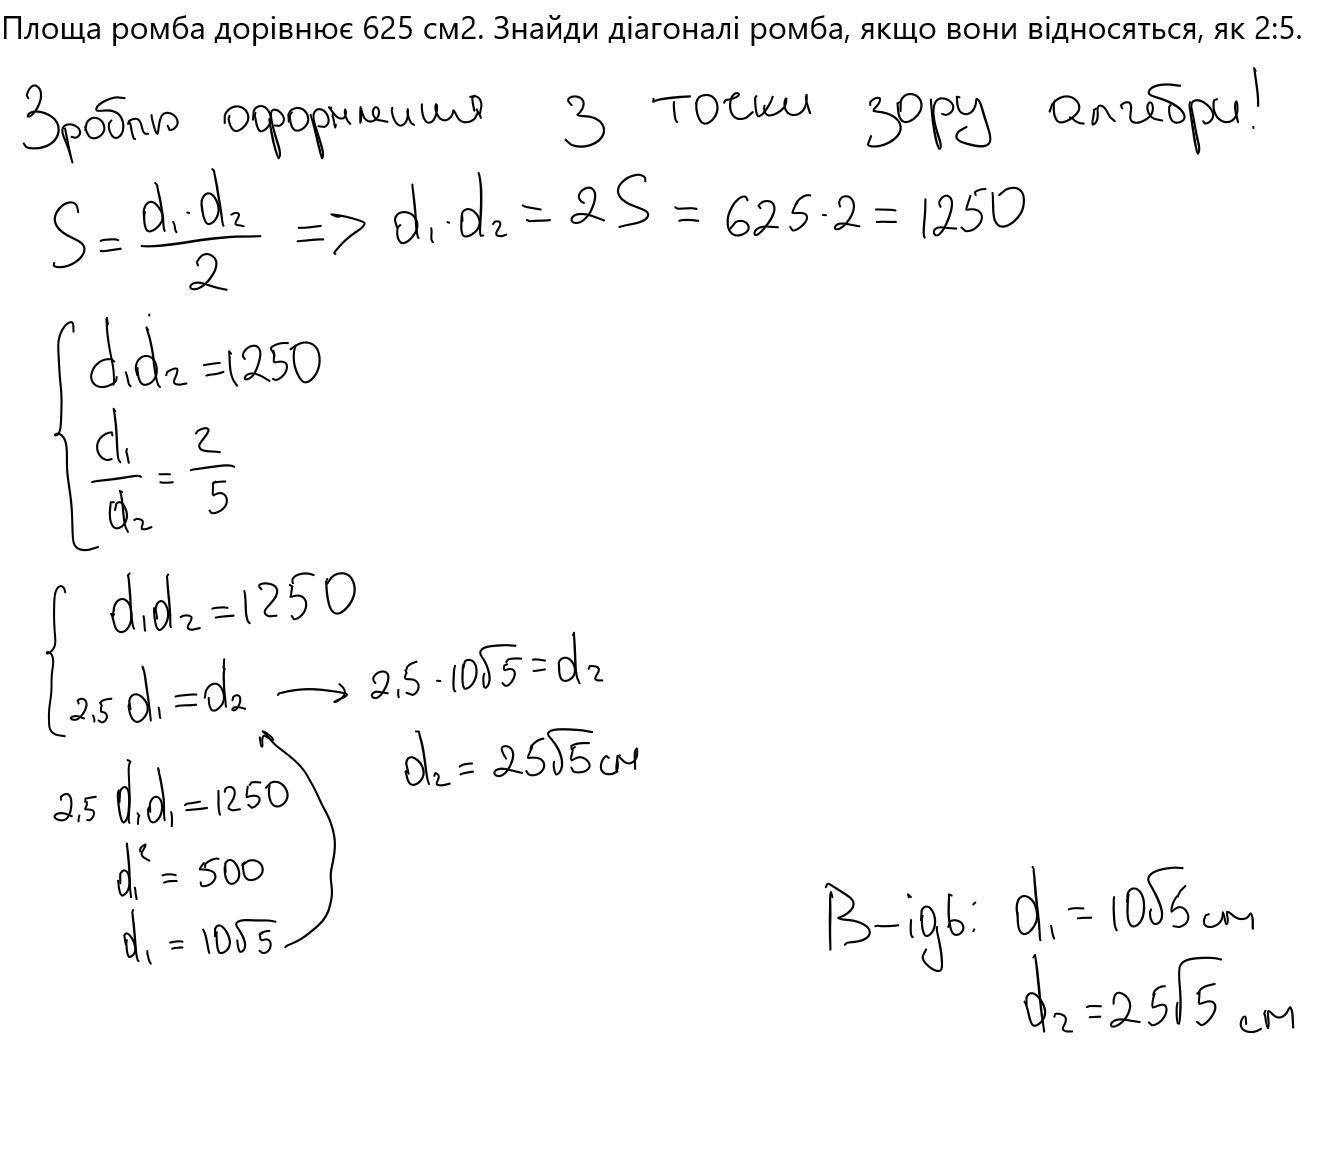 Площа ромба дорівнює 625 см2. Знайди діагоналі ромба, якщо вони відносяться, як 2:5.
Зроблю оформлення з точки зору алгебри!
S = d₁·d₂/2 => d₁·d₂ = 2S = 625·2 = 1250
{ d₁d₂ = 1250
d₁/d₂ = 2/5
{ d₁d₂ = 1250
2,5 d₁ = d₂ → 2,5 · 10√5 = d₂
d₂ = 25√5 см
2,5 d₁d₁ = 1250
d₁² = 500
d₁ = 10√5
В-ідь: d₁ = 10√5 см
d₂ = 25√5 см